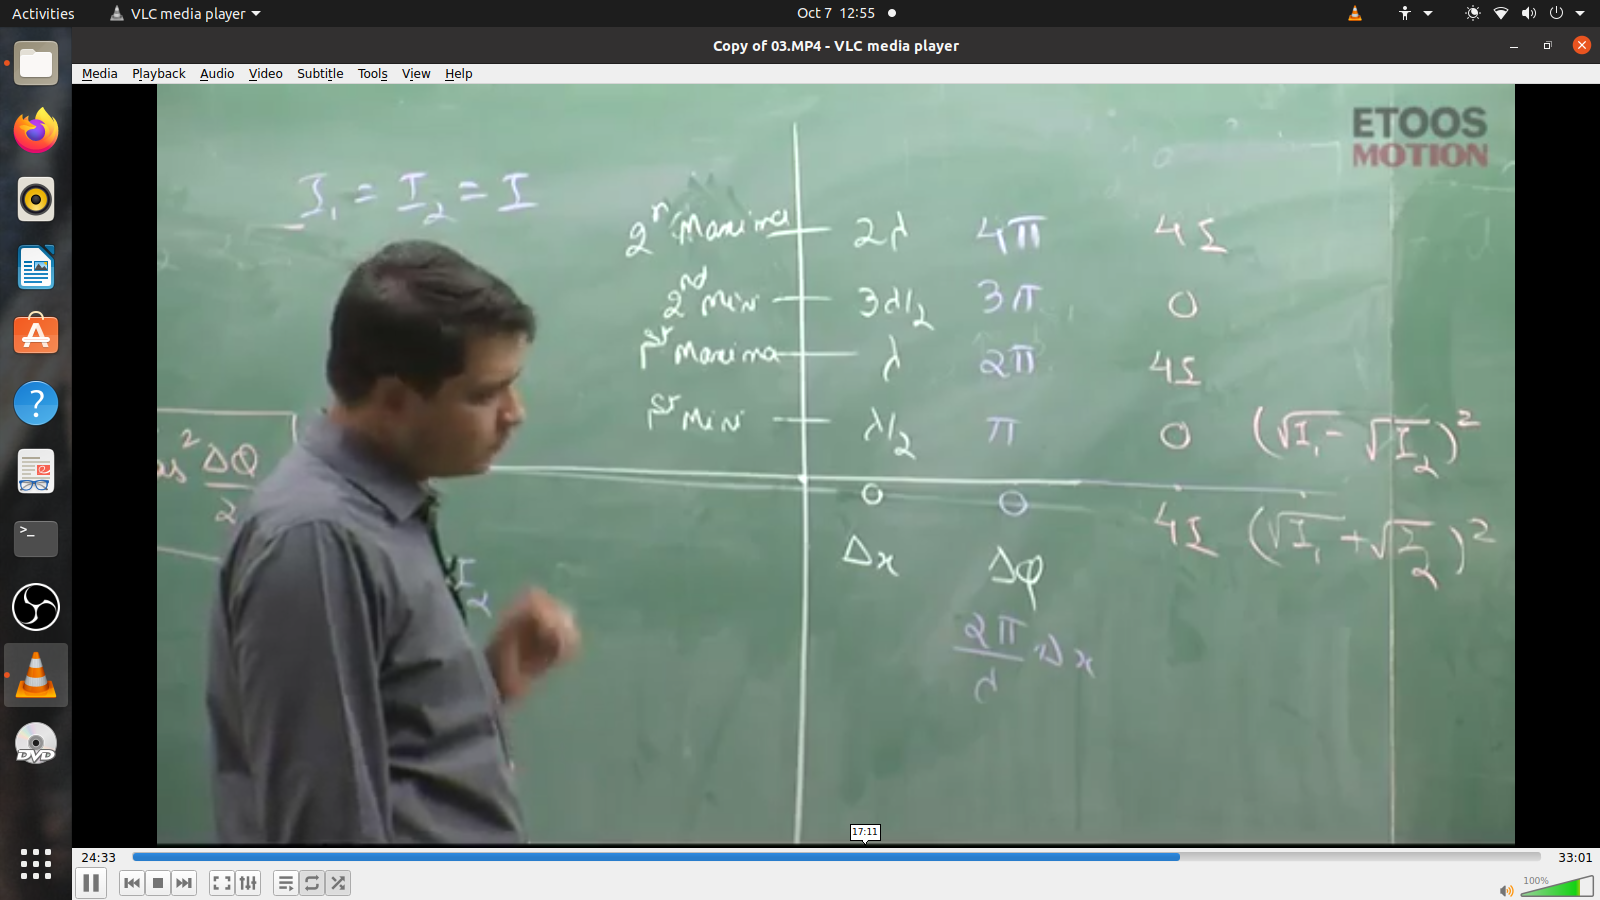 Activities VLC media player Oct 7 12:55
Copy of 03.MP4 - VLC media player
Media Playback Audio Video Subtitle Tools View Help
ETOOS
MOTION
I₁ = I₂ = I
2ⁿ Maxima 2λ 4π 4I
2ⁿᵈ Min 3λ/2 3π 0
1ˢᵗ Maxima λ 2π 4I
1ˢᵗ Min λ/2 π 0 (√I₁ - √I₂)²
os² Δφ/2
0 0 4I (√I₁ + √I₂)²
Δx Δφ
I₂
2π/λ Δx
17:11
24:33 33:01
100%